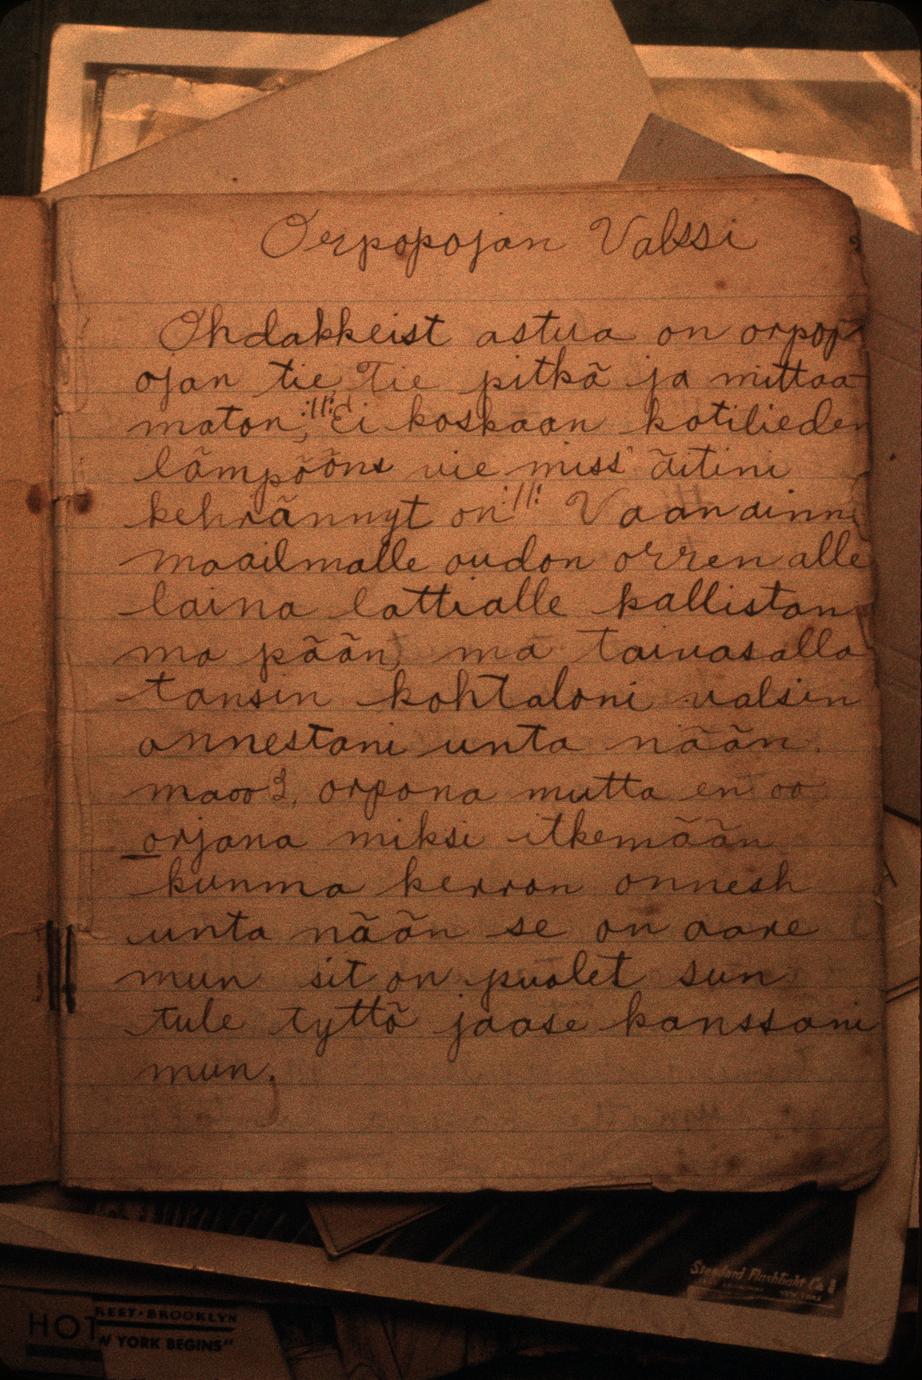 Orpopojan Valssi
Ohdakkeist astua on orpop
ojan tie Tie pitkä ja mittaa
maton, :||: Ei koskaan kotilieden
lämpööns vie miss' äitini
kehrännyt on :||: Vaan ainne
maailmalle oudon orren alle
laina lattialle kallistan
ma pään, ma taivasalla
tansin kohtaloni valsin
onnestani unta nään.
ma oo orpona mutta en oo
orjana miksi itkemään
kunma kerran onnesh
unta nään se on aare
mun sit on puolet sun
tule tyttö jaase kanssani
mun.
Standard Flashlight Co
HOT
REET·BROOKLYN
W YORK BEGINS"